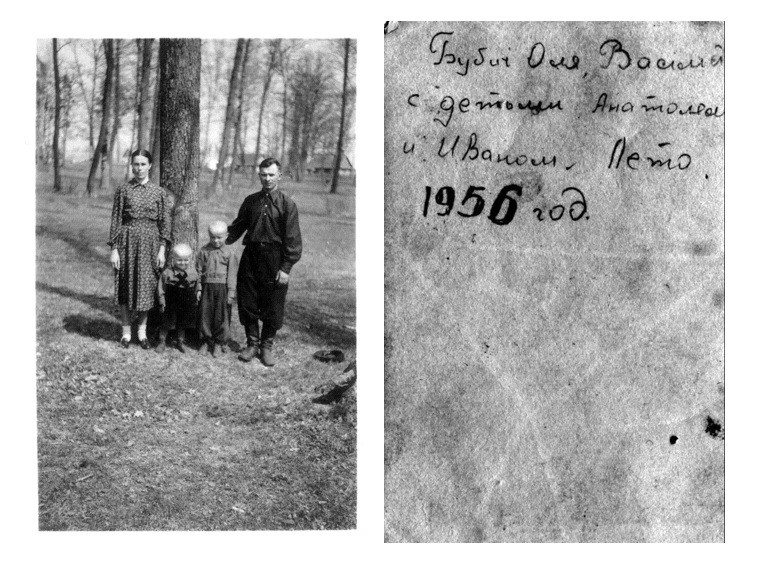 Бубич Оля, Василий
с детьми Анатолем
и Иваном. Лето.
1956 год.